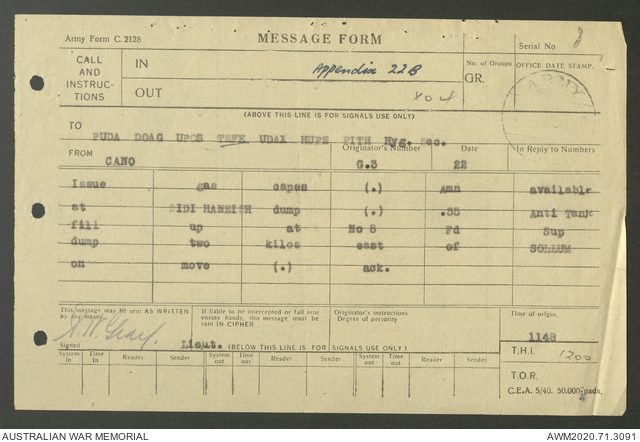 Army Form C.2128
MESSAGE FORM
Serial No 8
CALL AND INSTRUC-TIONS
IN
Appendix 22B
No. of Groups
GR.
OFFICE DATE STAMP.
OUT
ARMY
(ABOVE THIS LINE IS FOR SIGNALS USE ONLY)
TO
PUDA DOAG UPOS TEFE UDAX HUPE PITH Hyg. Sec.
FROM
CANO
Originator's Number
G.3
Date
22
In Reply to Numbers
Issue gas capes (.) Amn available
at SIDI HANEISH dump (.) .55 Anti Tank
fill up at No 8 Fd Sup
dump two kilos east of SOLLUM
on move (.) ack.
This message may be sent AS WRITTEN by any means.
If liable to be intercepted or fall into enemy hands, this message must be sent IN CIPHER
Originator's instructions
Degree of periority
Time of origin.
1148
Signed
Lieut.
(BELOW THIS LINE IS FOR SIGNALS USE ONLY.)
T.H.I. 1200
System in
Time In
Reader
Sender
System out
Time out
Reader
Sender
System out
Time out
Reader
Sender
T.O.R.
C.E.A. 5/40. 50.000 pads.
AUSTRALIAN WAR MEMORIAL
AWM2020.71.3091